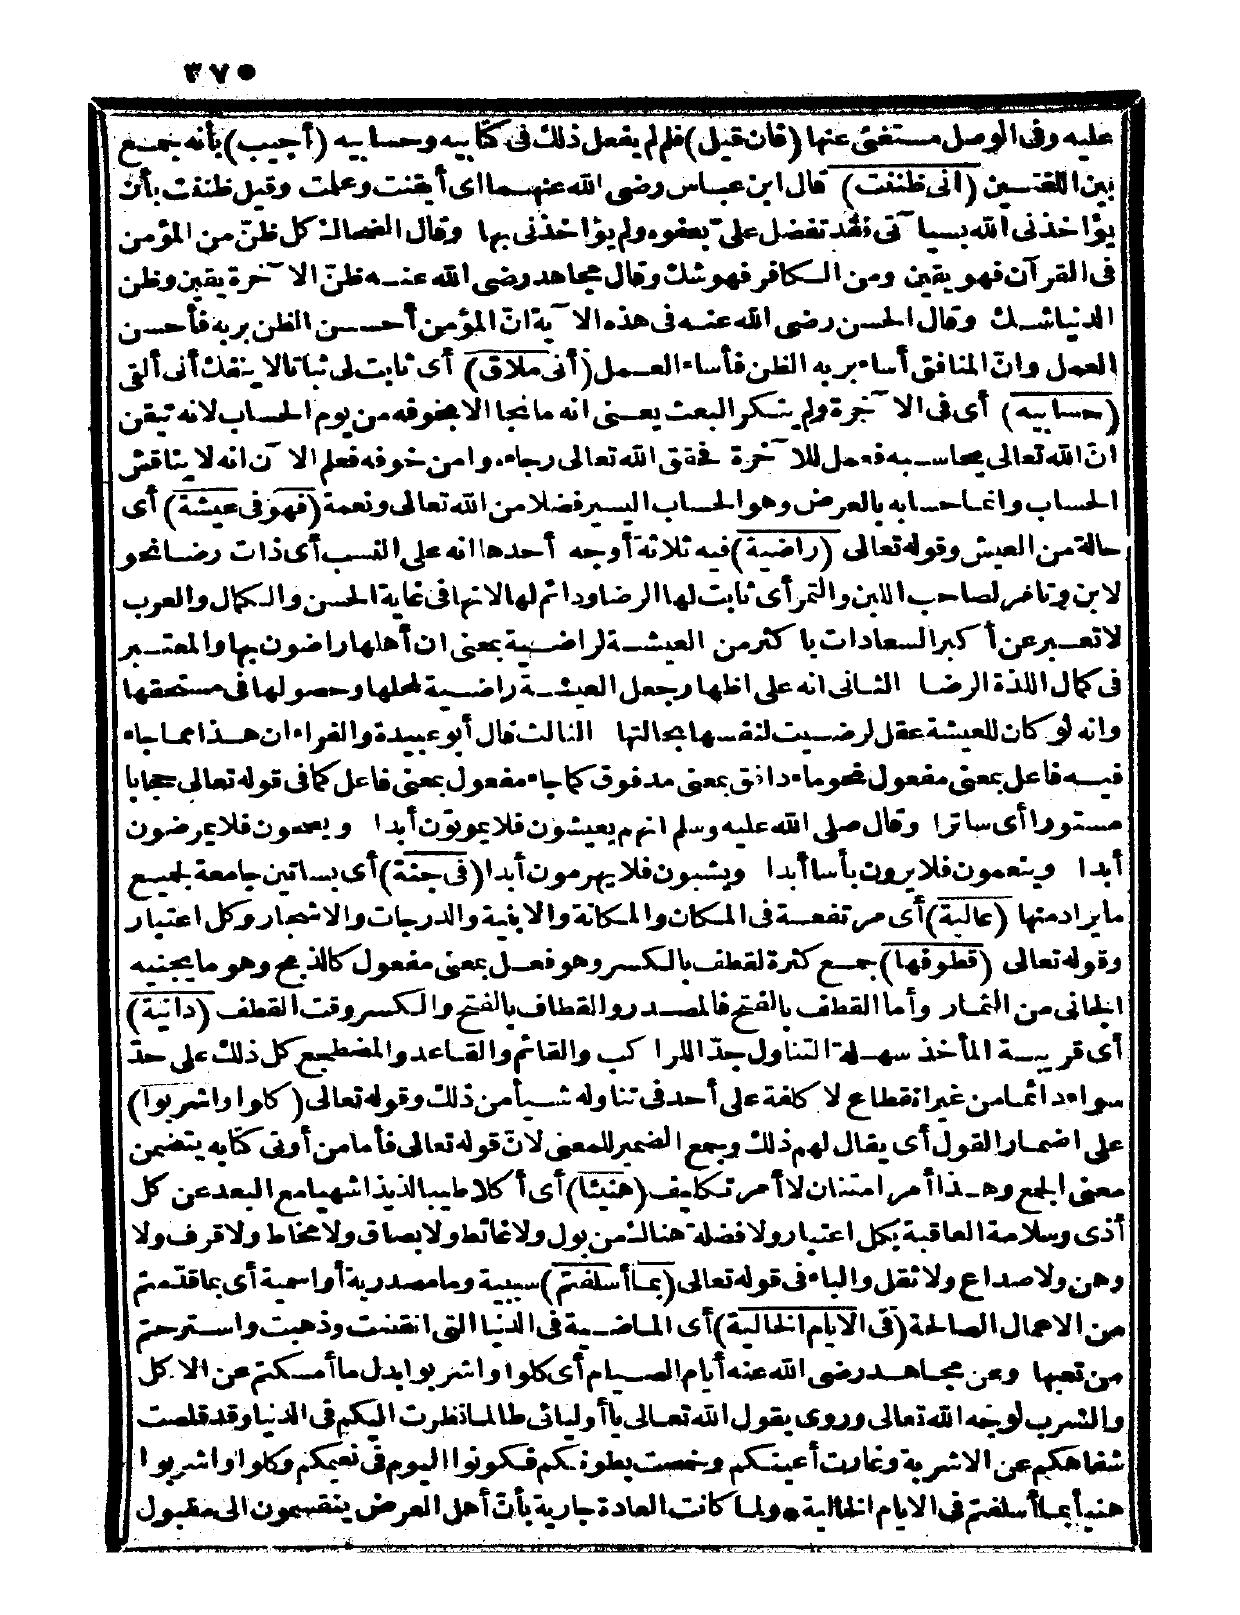 ٣٧٥
عليه وفى الوصل مستغنى عنها (فان قيل) فلم لم يفعل ذلك فى كتابيه وحسابيه (أجيب) بأنه جمع
بين اللغتين (انى ظننت) قال ابن عباس رضى الله عنهما اى أيقنت وعلمت وقيل ظننت بأن
يؤاخذنى الله بسيا تنى فقد تفضل علىّ بعفوه ولم يؤاخذنى بها وقال الضحاك كل ظنّ من المؤمن
فى القرآن فهو يقين ومن الكافر فهو شك وقال مجاهد رضى الله عنه ظنّ الا خرة يقين وظن
الدنيا شك وقال الحسن رضى الله عنه فى هذه الا ية انّ المؤمن أحسن الظن بربه فأحسن
العمل وانّ المنافق أساء بربه الظن فأساء العمل (أنى ملاق) أى ثابت لى ثباتا لا ينفك أنى ألقى
(حسابيه) أى فى الا خرة ولم ينكر البعث يعنى انه ما نجا الا بخوفه من يوم الحساب لانه تيقن
انّ الله تعالى يحاسبه فعمل للا خرة فحقق الله تعالى رجاءه وامن خوفه فعلم الا ن انه لا يناقش
الحساب وانما حسابه بالعرض وهو الحساب اليسير فضلا من الله تعالى ونعمة (فهو فى عيشة) أى
حالة من العيش وقوله تعالى (راضية) فيه ثلاثة أوجه أحدها انه على النسب أى ذات رضا نحو
لابن وتامر لصاحب اللبن والتمر أى ثابت لها الرضا ودائم لها لانها فى غاية الحسن والكمال والعرب
لا تعبر عن أكبر السعادات با كثر من العيشة لراضية بمعنى ان أهلها راضون بها والمعتبر
فى كمال اللذة الرضا الثانى انه على اظها رجعل العيشة راضية لمحلها وحصولها فى مستحقها
وانه لو كان للعيشة عقل لرضيت لنفسها بحالتها الثالث قال أبو عبيدة والفراء ان هذا مما جاء
فيه فاعل بمعنى مفعول نحو ماء دافق بمعنى مدفوق كما جاء مفعول بمعنى فاعل كما فى قوله تعالى حجابا
مستورا أى ساترا وقال صلى الله عليه وسلم انهم يعيشون فلا يموتون أبدا ويصحون فلا يمرضون
أبدا وينعمون فلا يرون بأسا أبدا ويشبون فلا يهرمون أبدا (فى جنة) أى بساتين جامعة لجميع
ما يراد منها (عالية) أى مرتفعة فى المكان والمكانة والابنية والدرجات والاشجار وكل اعتبار
وقوله تعالى (قطوفها) جمع كثرة لقطف بالكسر وهو فعل بمعنى مفعول كالذبح وهو ما يجنيه
الجانى من الثمار وأما القطف بالفتح فالمصدر والقطاف بالفتح والكسر وقت القطف (دانية)
أى قريبة المأخذ سهلة التناول جدّا للرا كب والقائم والقاعد والمضطجع كل ذلك على حدّ
سواء دائما من غير انقطاع لا كلفة على أحد فى تناوله شيأ من ذلك وقوله تعالى (كلوا واشربوا)
على اضمار القول أى يقال لهم ذلك وجمع الضمير للمعنى لانّ قوله تعالى فأما من أوتى كتابه يتضمن
معنى الجمع وهذا أمر امتنان لا أمر تكليف (هنيئا) أى أكلا طيبا لذيذا شهيا مع البعد عن كل
أذى وسلامة العاقبة بكل اعتبار ولا فضلة هنالك من بول ولا غائط ولا بصاق ولا مخاط ولا قرف ولا
وهن ولا صداع ولا ثقل والباء فى قوله تعالى (بما أسلفتم) سببية وما مصدرية أو اسمية أى بما قدّمتم
من الاعمال الصالحة (فى الايام الخالية) أى الماضية فى الدنيا التى انقضت وذهبت واسترحتم
من تعبها وعن مجاهد رضى الله عنه أيام الصيام أى كلوا واشربوا بدل ما أمسكتم عن الاكل
والشرب لوجه الله تعالى وروى يقول الله تعالى يا أوليائى طالما نظرت اليكم فى الدنيا وقد قلصت
شفاهكم عن الاشربة وغارت أعينكم وخمصت بطونكم فكونوا اليوم فى نعيمكم وكلوا واشربوا
هنيأ بما أسلفتم فى الايام الخالية • ولما كانت العادة جارية بأنّ أهل العرض ينقسمون الى مقبول